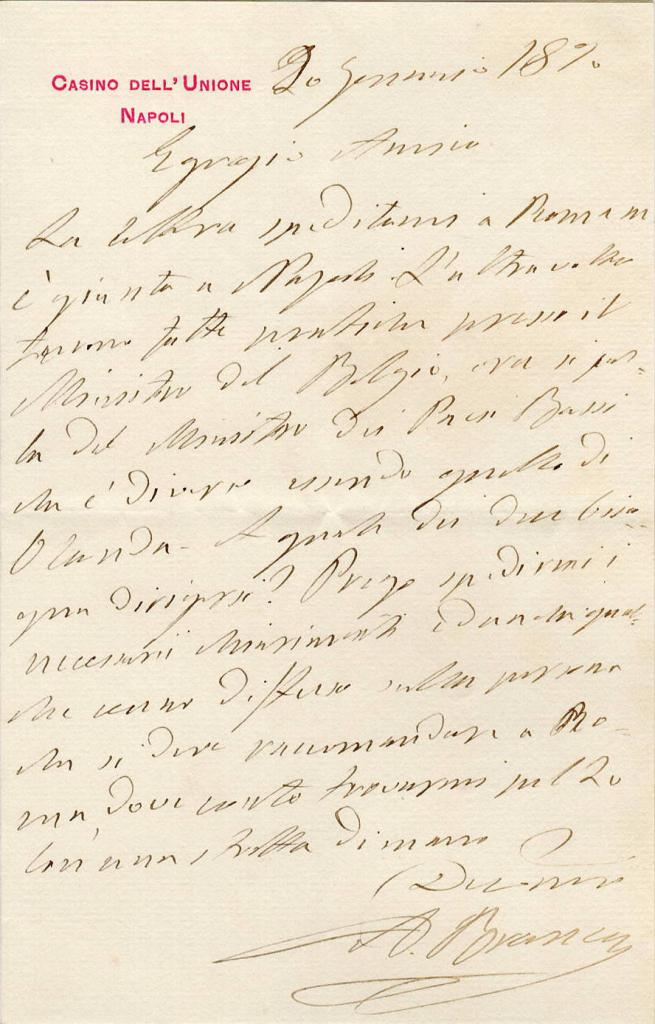 CASINO DELL'UNIONE
NAPOLI
20 Gennaio 189
Egregio Amico
La lettera speditami a Roma m
è giunta a Napoli. L'altra volta
furono fatte pratiche presso il
Ministro del Belgio, ora si par-
la del Ministro dei Paesi Bassi
che è diverso essendo quello di
Olanda. A quale dei due biso-
gna dirigersi? Prego spedirmi i
necessarii chiarimenti ed anche qual-
che cenno diffuso sulla persona
che si deve raccomandare a Ro-
ma dove conto trovarmi pel 20
Con una stretta di mano
A. Branca